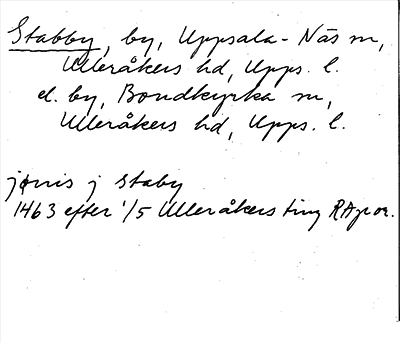 Stabby, by, Uppsala-Näs sn,
Ulleråkers hd, Upps. l.
el. by, Bondkyrka sn,
Ulleråkers hd, Upps. l.
jønis j staby
1463 efter 1/5 Ulleråkers ting RAp or.